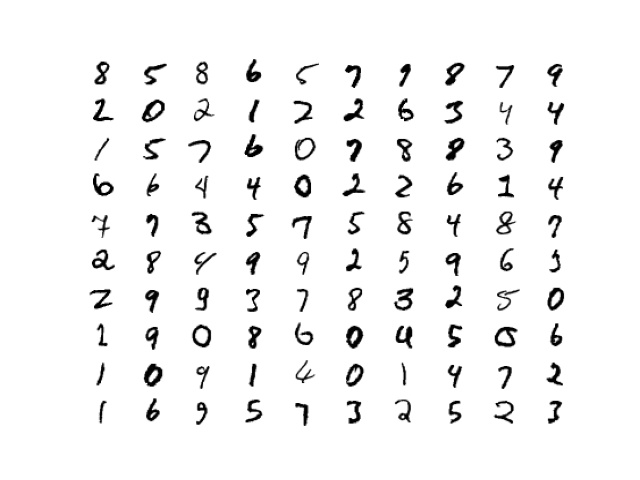 8 5 8 6 5 7 9 8 7 9
2 0 2 1 2 2 6 3 4 4
1 5 7 6 0 7 8 8 3 9
6 6 4 4 0 2 2 6 1 4
7 7 3 5 7 5 8 4 8 7
2 8 4 9 9 2 5 9 6 3
2 9 9 3 7 8 3 2 5 0
1 9 0 8 6 0 4 5 0 6
1 0 9 1 4 0 1 4 7 2
1 6 9 5 7 3 2 5 2 3